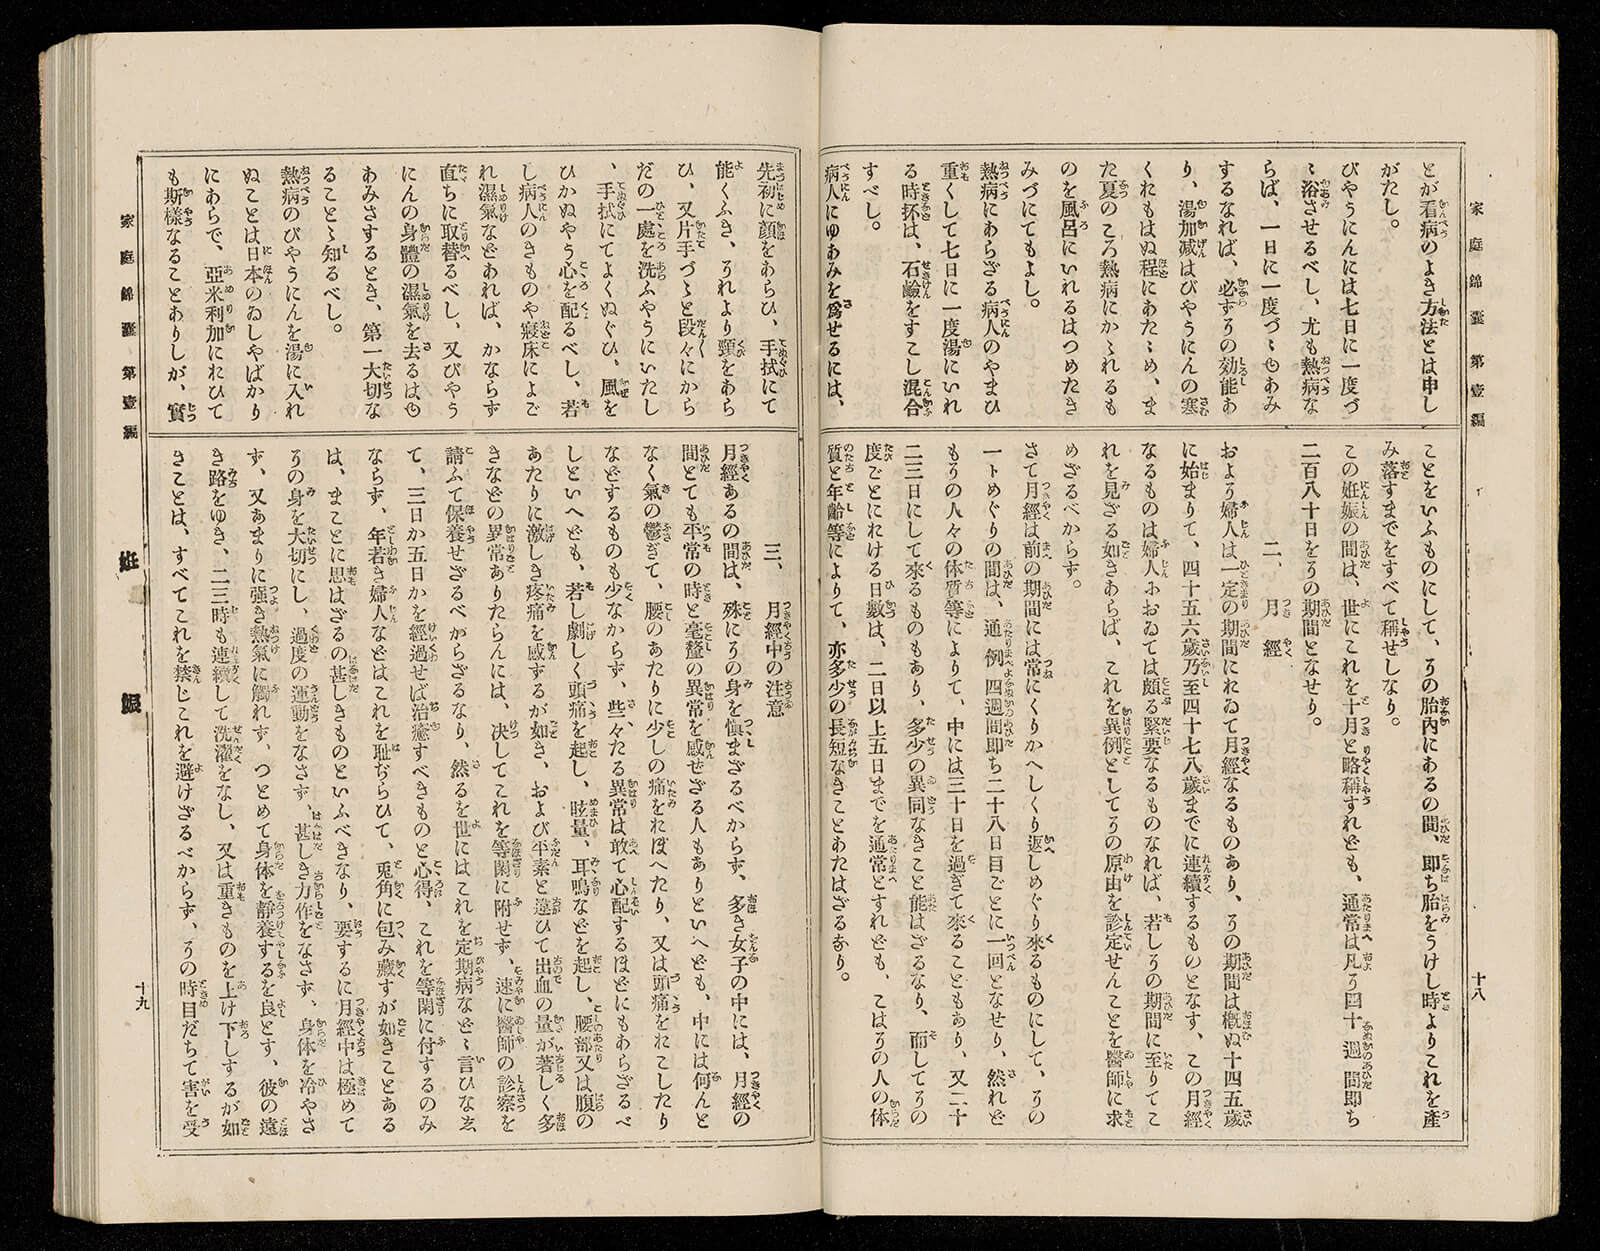 家庭錦囊 第壹編
十八
とが看病のよき方法とは申し
がたし。
びやうにんには七日に一度づ
ゝ浴させるべし、尤も熱病な
らば、一日に一度づゝもあみ
するなれば、必ずその効能あ
り、湯加减はびやうにんの寒
くれもはぬ程にあたゝめ、ま
た夏のころ熱病にかゝれるも
のを風呂にいれるはつめたき
みづにてもよし。
熱病にあらざる病人のやまひ
重くして七日に一度湯にいれ
る時抔は、石鹼をすこし混合
すべし。
病人にゆあみを爲せるには、
ことをいふものにして、その胎內にあるの間、即ち胎をうけし時よりこれを產
み落すまでをすべて稱せしなり。
この姙娠の間は、世にこれを十月と略稱すれども、通常は凡そ四十週間即ち
二百八十日をその期間となせり。
二、月經
およそ婦人は一定の期間にれゐて月經なるものあり、その期間は槪ぬ十四五歲
に始まりて、四十五六歲乃至四十七八歲までに連續するものとなす、この月經
なるものは婦人におゐては頗る緊要なるものなれば、若しその期間に至りてこ
れを見ざる如きあらば、これを異例としてその原由を診定せんことを醫師に求
めざるべからず。
さて月經は前の期間には常にくりかへしくり返しめぐり來るものにして、その
一トめぐりの間は、通例四週間即ち二十八日目ごとに一回となせり、然れど
もその人々の体質等によりて、中には三十日を過ぎて來ることもあり、又二十
二三日にして來るものもあり、多少の異同なきこと能はざるなり、而してその
度ごとにれける日數は、二日以上五日までを通常とすれども、こはその人の体
質と年齡等によりて、亦多少の長短なきことあたはざるなり。
先初に顔をあらひ、手拭にて
能くふき、それより頸をあら
ひ、又片手づゝと段々にから
だの一處を洗ふやうにいたし
、手拭にてよくぬぐひ、風を
ひかぬやう心を配るべし、若
し病人のきものや寢床によご
れ濕氣などあれば、かならず
直ちに取替るべし、又びやう
にんの身體の濕氣を去るはも
あみさするとき、第一大切な
ることゝ知るべし。
熱病のびやうにんを湯に入れ
ぬことは日本のゐしやばかり
にあらで、亞米利加にれひて
も斯樣なることありしが、實
三、月經中の注意
月經あるの間は、殊にその身を愼まざるべからず、多き女子の中には、月經の
間とても平常の時と毫釐の異常を感せざる人もありといへども、中には何んと
なく氣の鬱ぎて、腰のあたりに少しの痛をれぼへたり、又は頭痛をれこしたり
などするものも少なからず、些々たる異常は敢て心配するほどにもあらざるべ
しといへども、若し劇しく頭痛を起し、眩暈、耳鳴などを起し、腰部又は腹の
あたりに激しき疼痛を感するが如き、および平素と違ひて出血の量が著しく多
きなどの異常ありたらんには、决してこれを等閑に附せず、速に醫師の診察を
請ふて保養せざるべからざるなり、然るを世にはこれを定期病などゝ言ひなゑ
て、三日か五日かを經過せば治癒すべきものと心得、これを等閑に付するのみ
ならず、年若き婦人などはこれを耻ぢらひて、兎角に包み藏すが如きことある
は、まことに思はざるの甚しきものといふべきなり、要するに月經中は極めて
その身を大切にし、過度の運動をなさず、甚しき力作をなさず、身体を冷やさ
ず、又あまりに强き熱氣に觸れず、つとめて身体を靜養するを良とす、彼の遠
き路をゆき、二三時も連續して洗濯をなし、又は重きものを上け下しするが如
きことは、すべてこれを禁じこれを避けざるべからず、その時目だちて害を受
家庭錦囊 第壹編
姙娠
十九